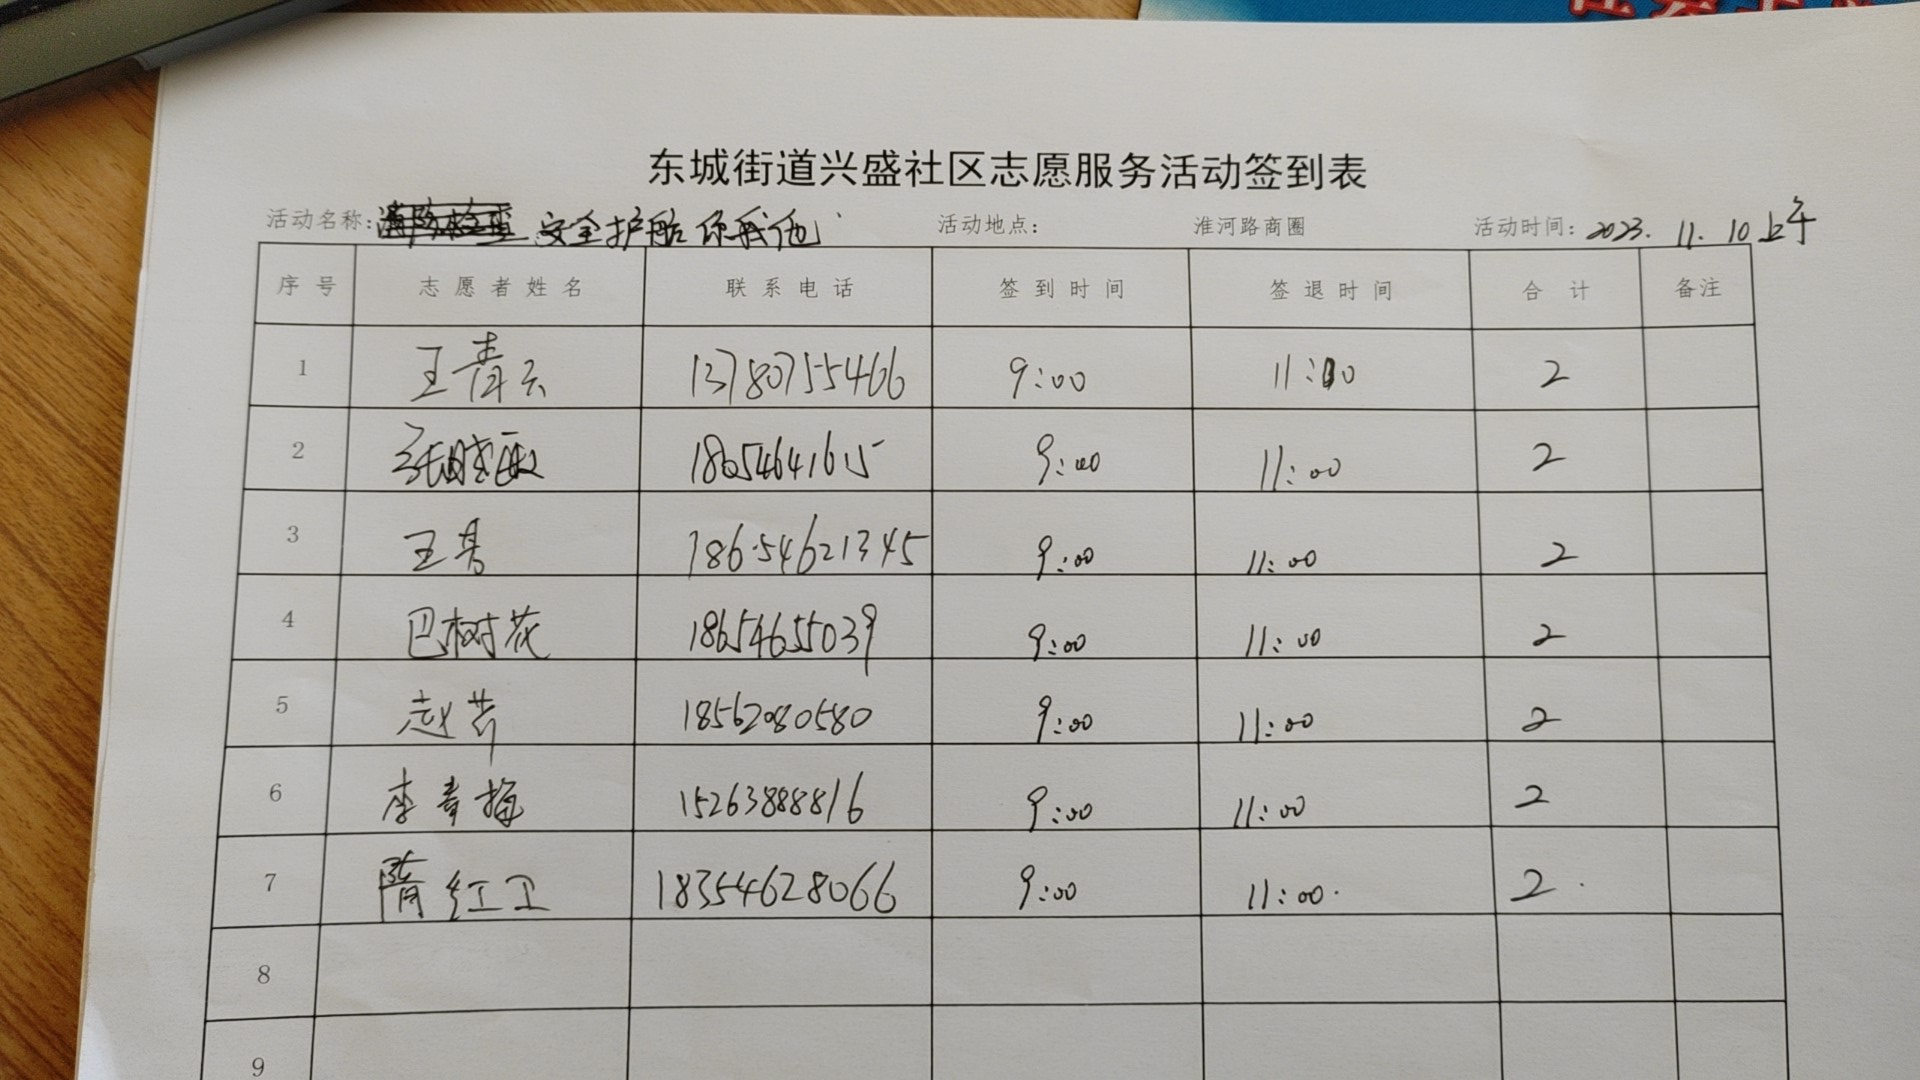 东城街道兴盛社区志愿服务活动签到表
活动名称: 安全护航 你我他 活动地点: 淮河路商圈 活动时间: 2023. 11. 10 上午
序号 志愿者姓名 联系电话 签到时间 签退时间 合计 备注
1 王青云 13780755466 9:00 11:00 2
2 张晓敏 9:00 11:00 2
3 王 18654621345 9:00 11:00 2
4 巴树花 18654655039 9:00 11:00 2
5 赵芳 18562080580 9:00 11:00 2
6 李青梅 15263888816 9:00 11:00 2
7 隋红卫 18354628066 9:00 11:00 2
8
9